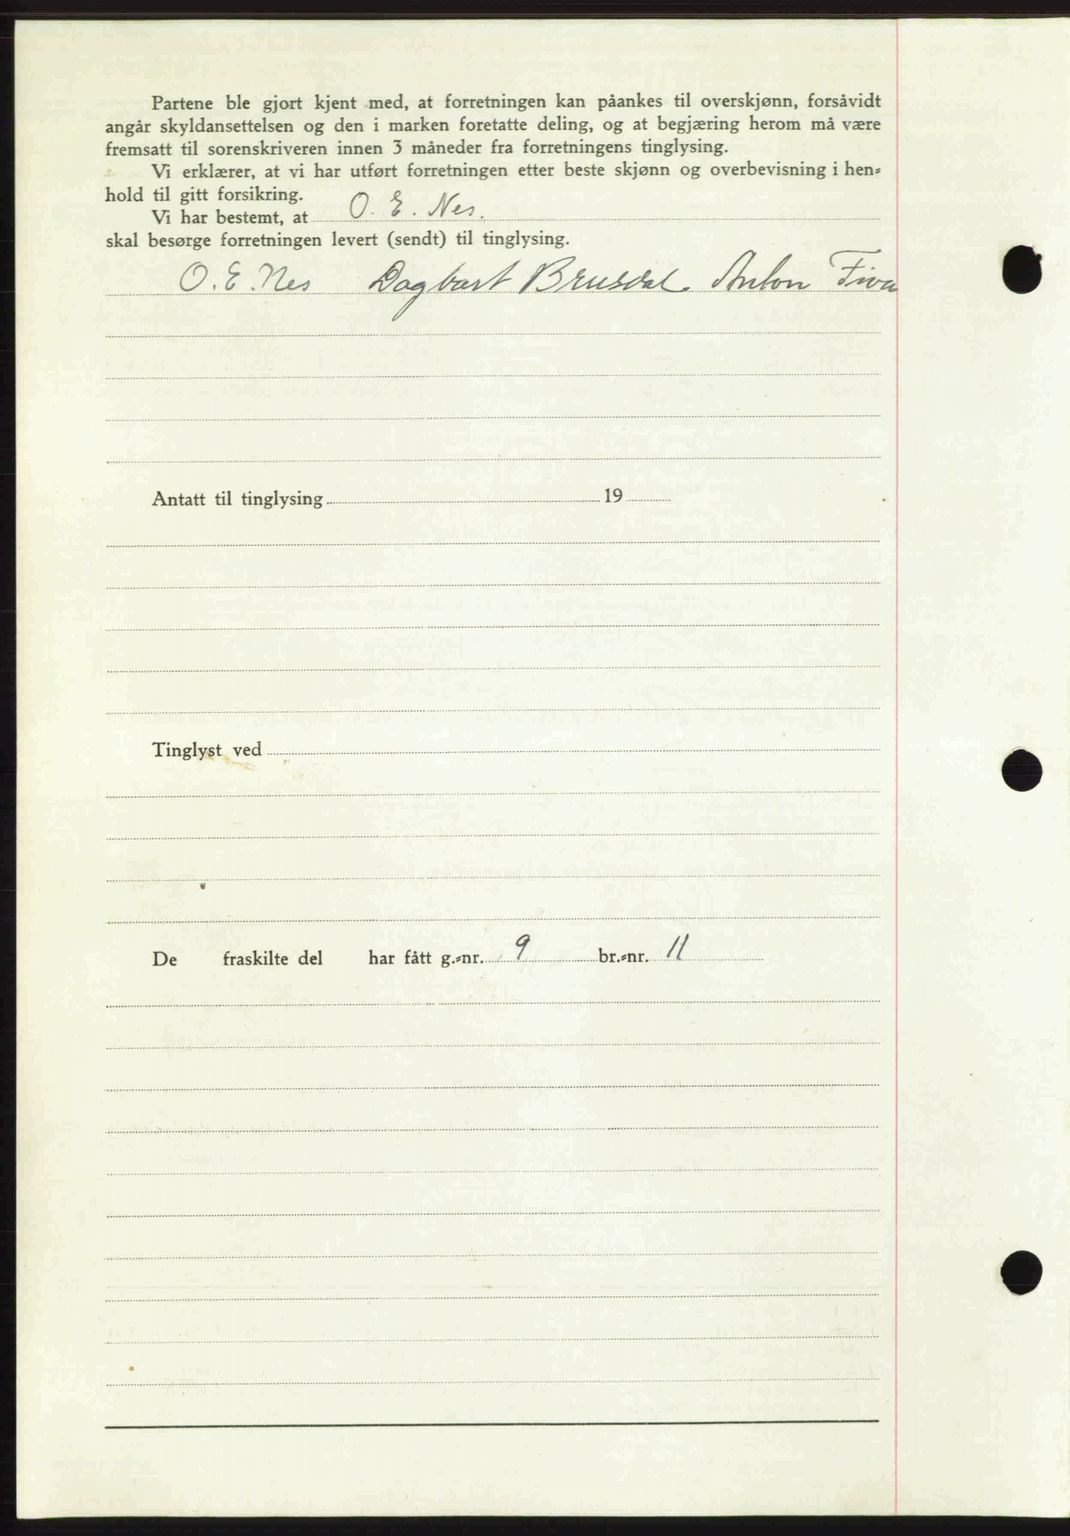 Partene ble gjort kjent med, at forretningen kan påankes til overskjønn, forsåvidt
angår skyldansettelsen og den i marken foretatte deling, og at begjæring herom må være
fremsatt til sorenskriveren innen 3 måneder fra forretningens tinglysing.
Vi erklærer, at vi har utført forretningen etter beste skjønn og overbevisning i hen-
hold til gitt forsikring.
Vi har bestemt, at O. E. Nes.
skal besørge forretningen levert (sendt) til tinglysing.
O. E. Nes Dagbart Brusdal Anton Fiva
Antatt til tinglysing 19
Tinglyst ved
De fraskilte del har fått g.-nr. 9 br.-nr. 11